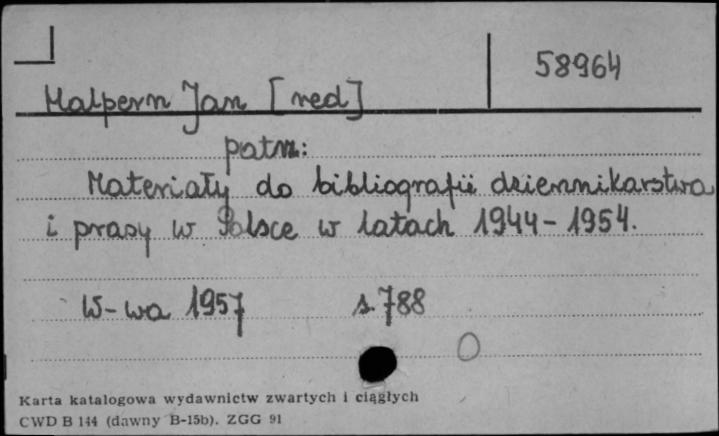 58964
Halpern Jan [red]
patrz:
Materiały do bibliografii dziennikarstwa
i prasy w Polsce w latach 1944-1954.
W-wa 1957 s. 788
Karta katalogowa wydawnictw zwartych i ciągłych
CWD B 144 (dawny B-15b). ZGG 91